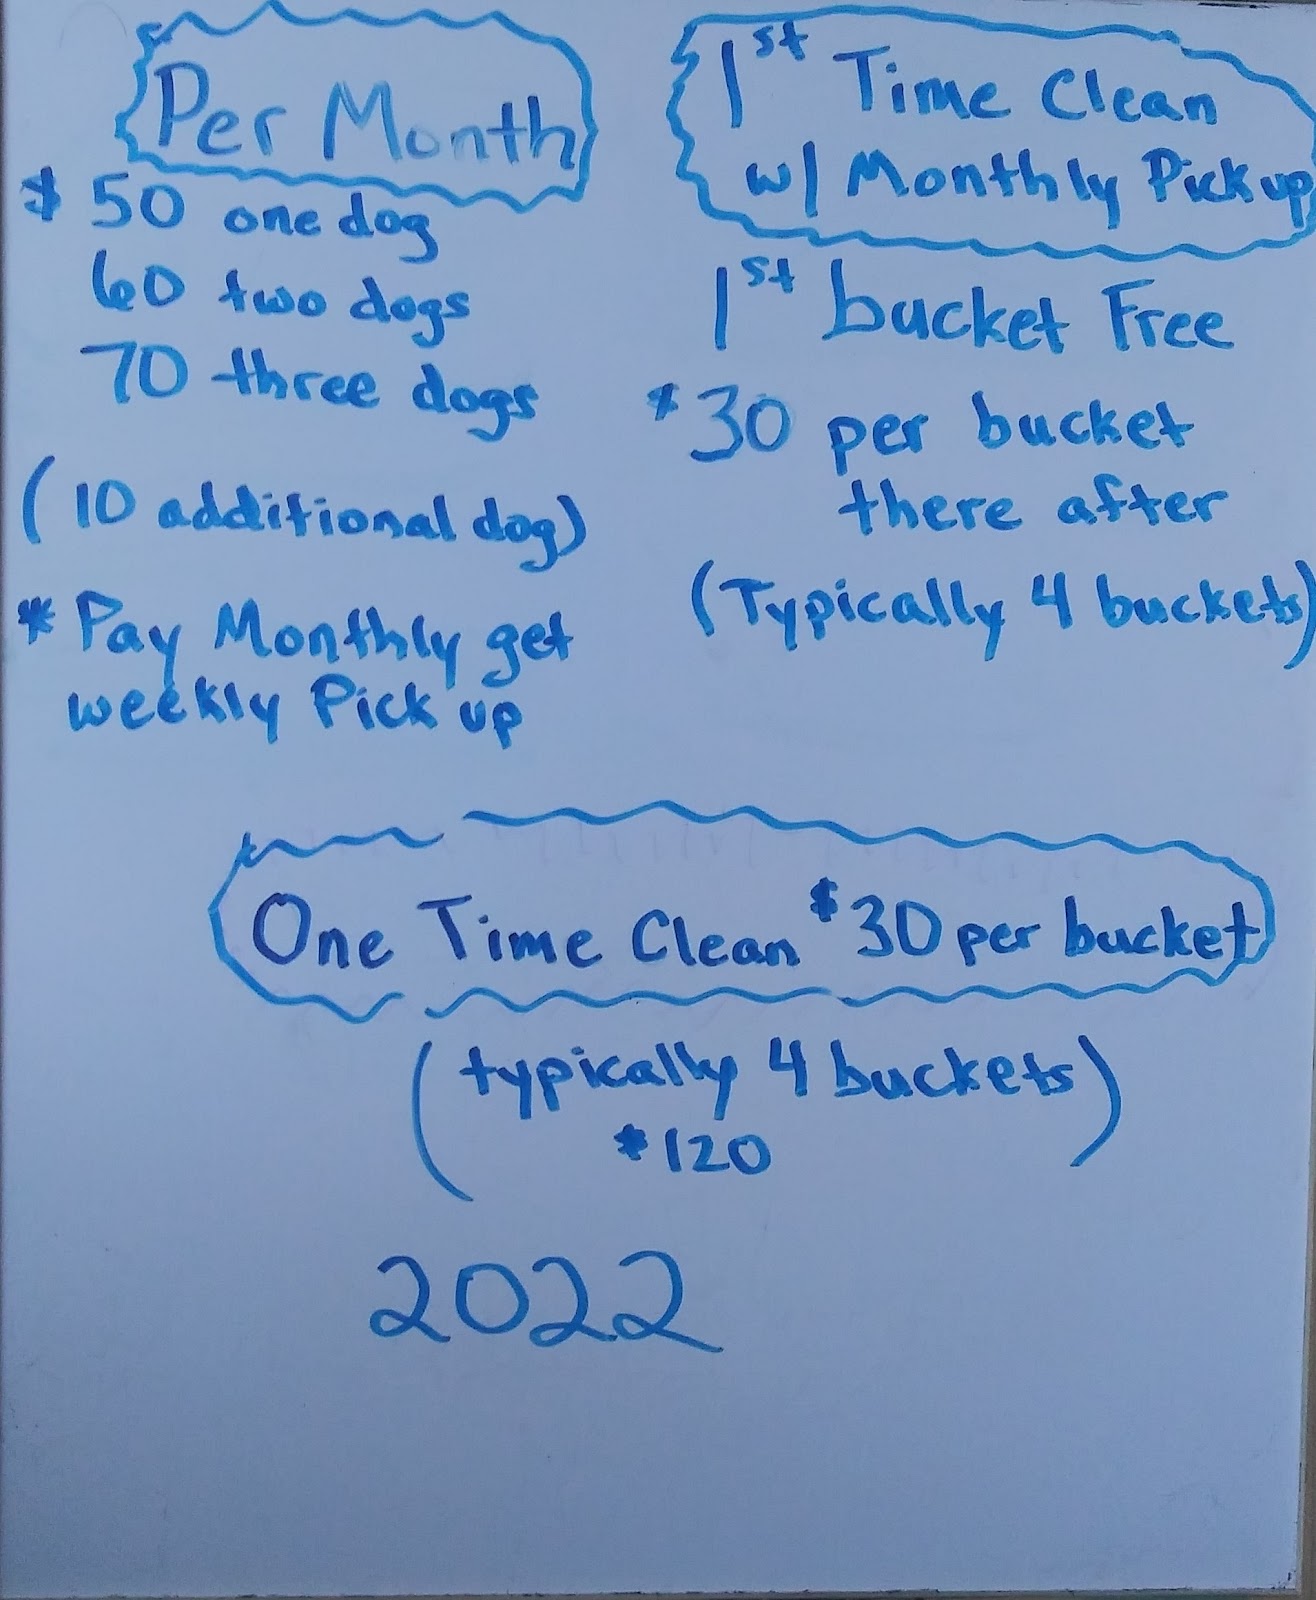 Per Month
$ 50 one dog
60 two dogs
70 three dogs
(10 additional dog)
* Pay Monthly get
weekly Pick up
1st Time Clean
w/ Monthly Pick up
1st bucket Free
$30 per bucket
there after
(Typically 4 buckets)
One Time Clean $30 per bucket
(typically 4 buckets)
$120
2022